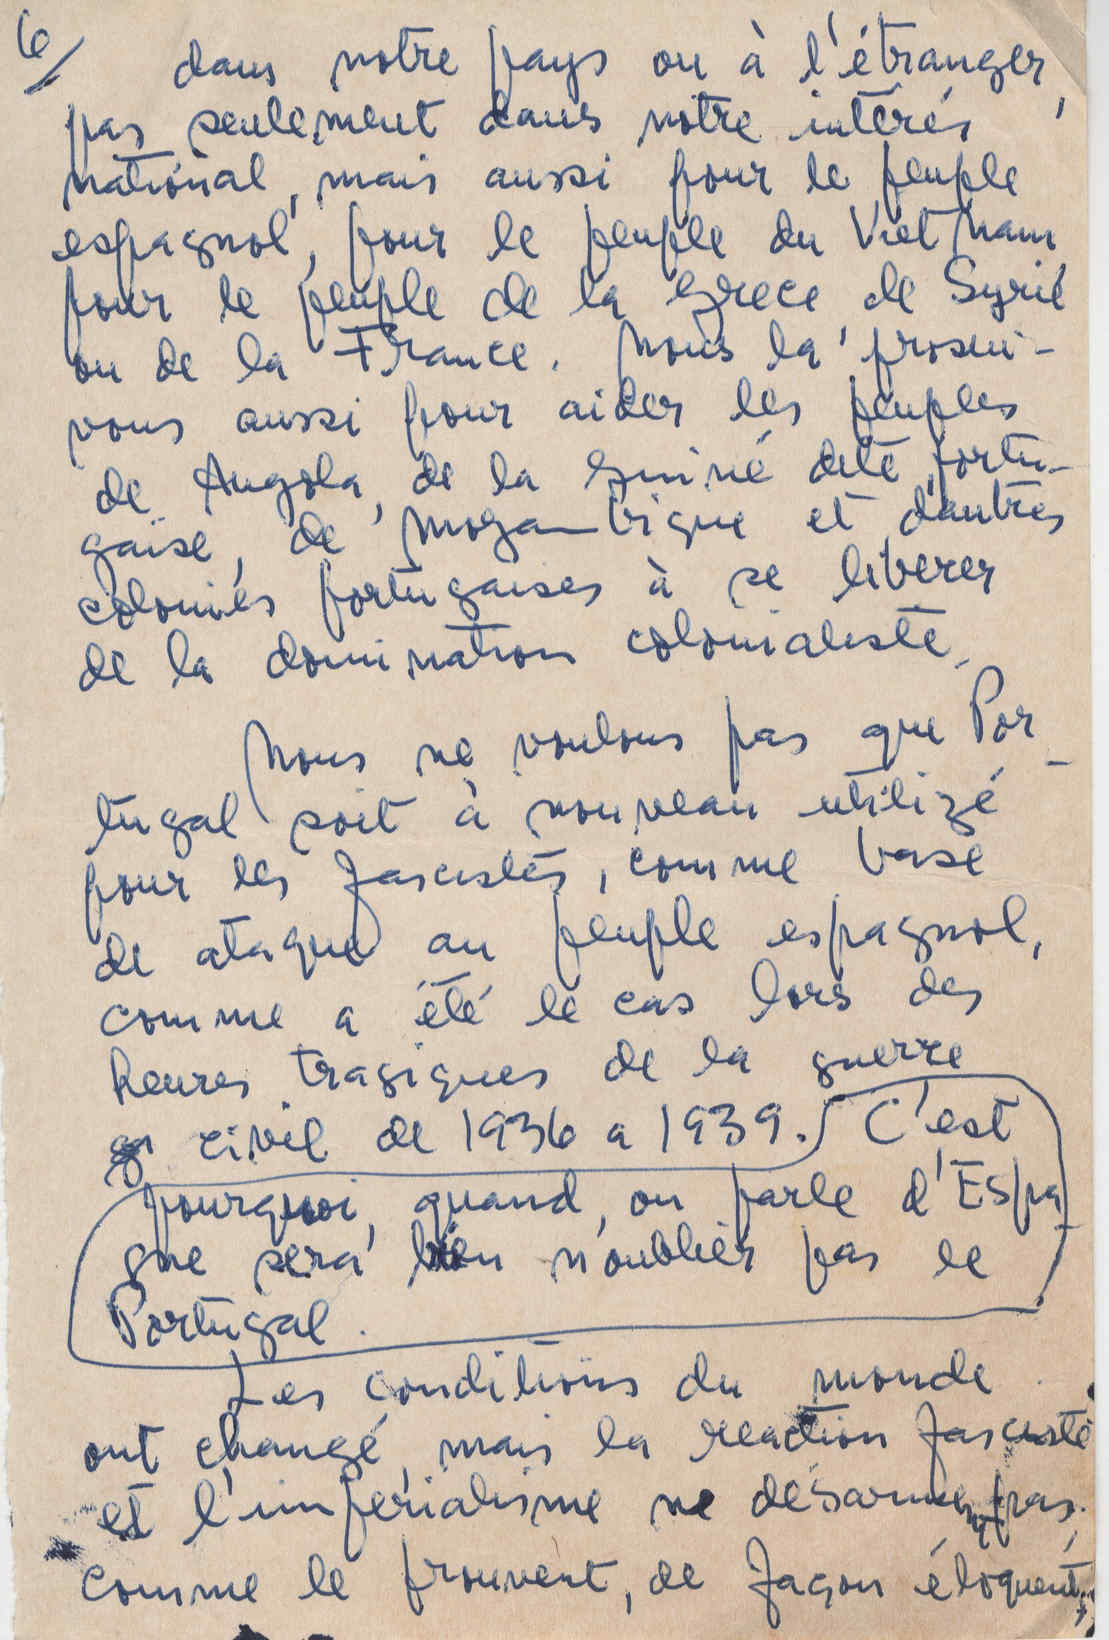 6/
dans notre pays ou à l'étranger,
pas seulement dans notre intérés
national, mais aussi pour le peuple
espagnol, pour le peuple du Viet Nam
pour le peuple de la Grece de Syrie
ou de la France. Nous la prosui-
vons aussi pour aider les peuples
de Angola, de la Guiné dite portu-
gaise, de Mozambique et d'autres
colonies portugaises à se liberer
de la domination colonialiste.
Nous ne voulons pas que Por-
tugal soit à nouveau utilizé
pour les fascistes, comme base
de ataque au peuple espagnol,
comme a été le cas lors des
heures tragiques de la guerre
civil de 1936 a 1939. C'est
pourquoi, quand, on parle d'Espa-
gne sera bien n'oublier pas le
Portugal.
Les conditions du monde
ont changé, mais la reaction fasciste
et l'impérialisme ne désarment pas.
comme le prouvent, de façon éloquent,